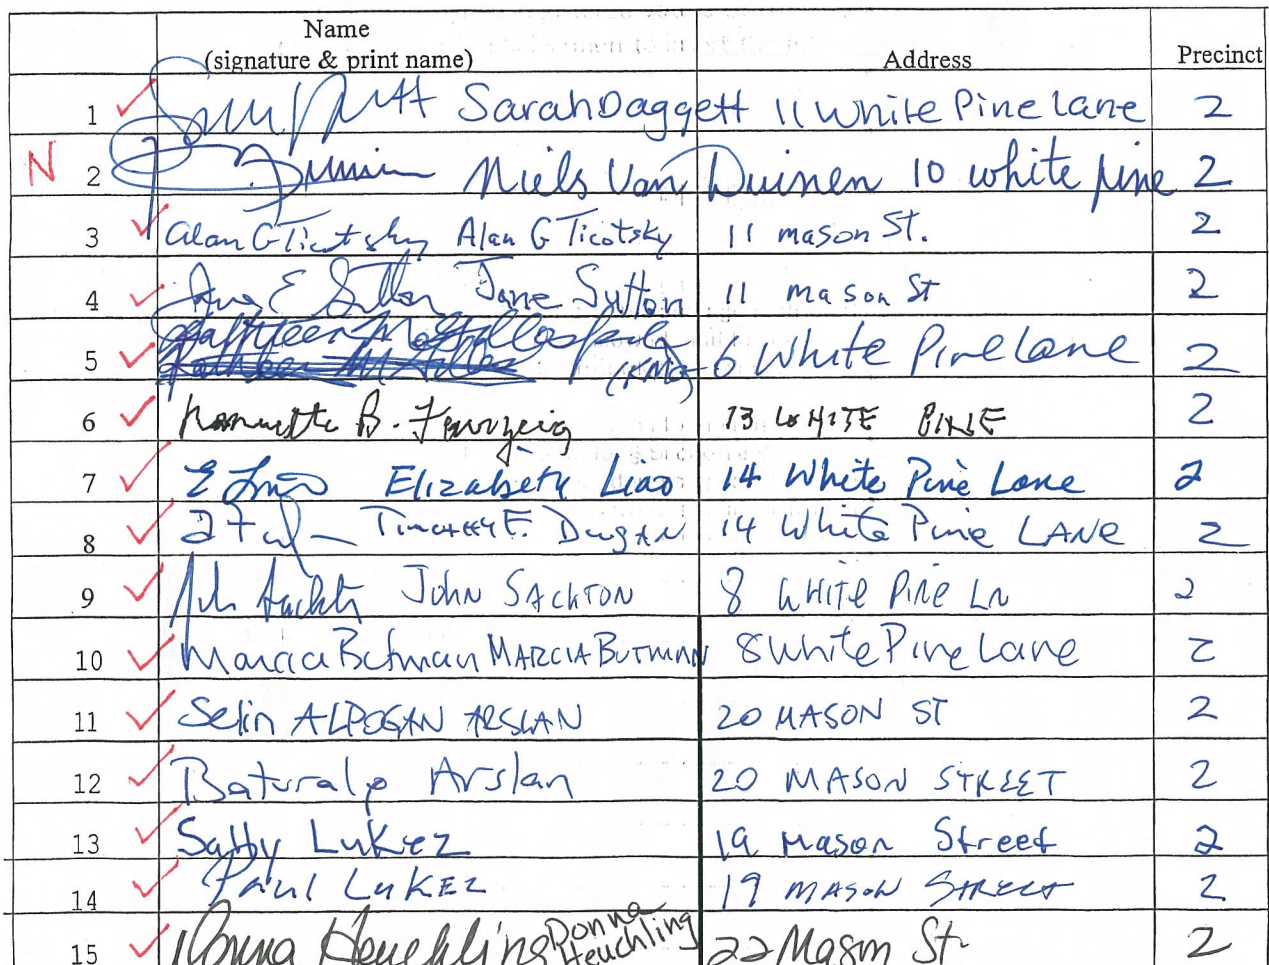 Name
(signature & print name) Address Precinct
1 Sarah Daggett 11 White Pine Lane 2
N 2 Niels Van Duinen 10 white pine 2
3 Alan G Ticotsky Alan G Ticotsky 11 mason St. 2
4 Jane E Sutton Jane Sutton 11 mason St 2
5 Kathleen M (KMG) 6 White Pine Lane 2
6 B. 13 WHITE PINE 2
7 E Liao Elizabeth Liao 14 White Pine Lane 2
8 Timothy F. Dugan 14 White Pine LANE 2
9 John Sackton John SACKTON 8 WHITE PINE LN 2
10 Marcia Butman MARCIA BUTMAN 8 White Pine Lane 2
11 Selin ALPOGAN ARSLAN 20 MASON ST 2
12 Baturalp Arslan 20 MASON STREET 2
13 Sally Lukez 19 Mason Street 2
14 Paul LUKEZ 19 MASON STREET 2
15 Donna Heuchling Donna Heuchling 22 Mason St 2